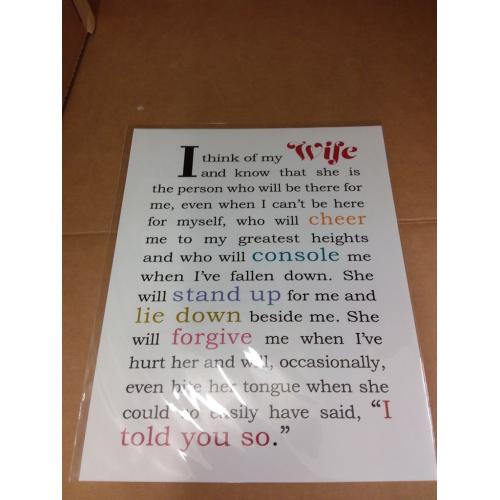 I think of my Wife
and know that she is
the person who will be there for
me, even when I can't be here
for myself, who will cheer
me to my greatest heights
and who will console me
when I've fallen down. She
will stand up for me and
lie down beside me. She
will forgive me when I've
hurt her and will, occasionally,
even bite her tongue when she
could so easily have said, "I
told you so."